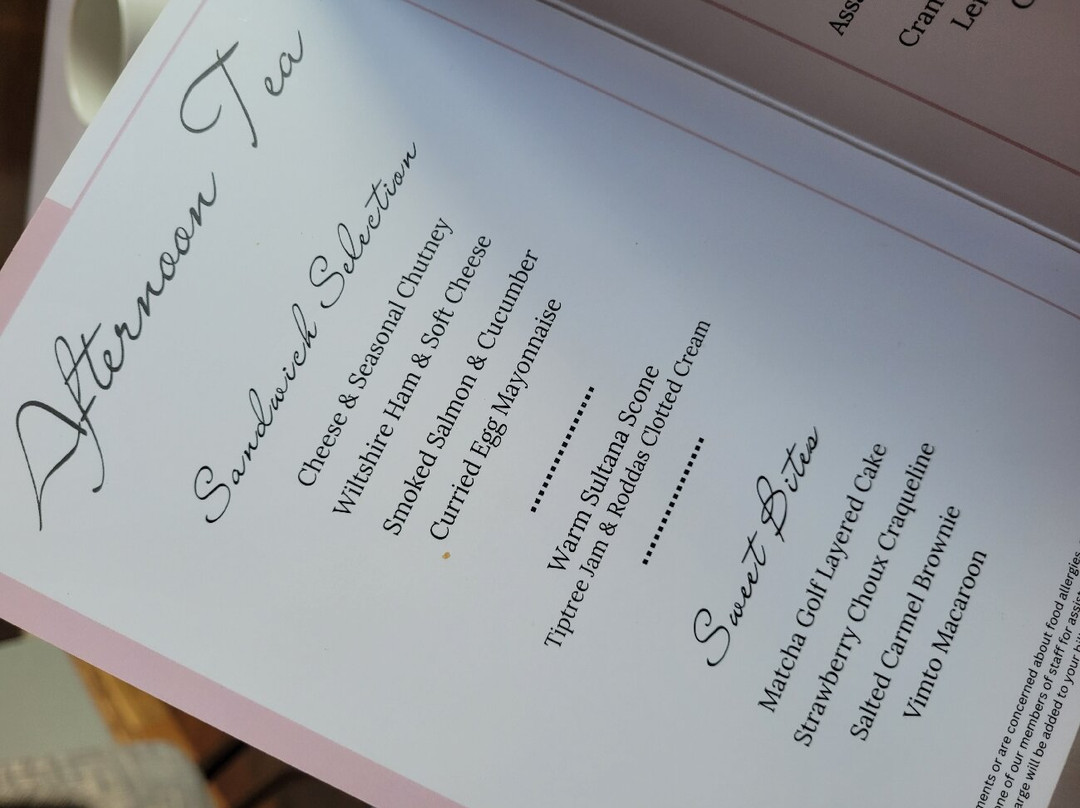 Afternoon Tea
Sandwich Selection
Cheese & Seasonal Chutney
Wiltshire Ham & Soft Cheese
Smoked Salmon & Cucumber
Curried Egg Mayonnaise
Warm Sultana Scone
Tiptree Jam & Roddas Clotted Cream
Sweet Bites
Matcha Golf Layered Cake
Strawberry Choux Craqueline
Salted Carmel Brownie
Vimto Macaroon
or are concerned about food allergies
one of our members of staff for
will be added to your